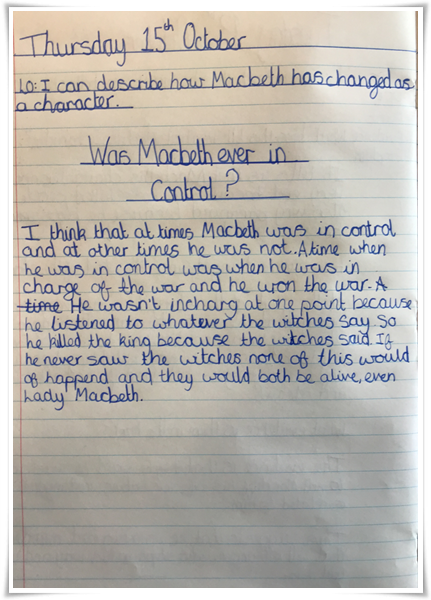 Thursday 15th October
LO: I can describe how Macbeth has changed as
a character.
Was Macbeth ever in
Control?
I think that at times Macbeth was in control
and at other times he was not. A time when
he was in control was when he was in
charge of the war and he won the war. A
time He wasn't incharg at one point because
he listened to whatever the witches say so
he killed the king because the witches said. If
he never saw the witches none of this would
of happend and they would both be alive, even
Lady Macbeth.